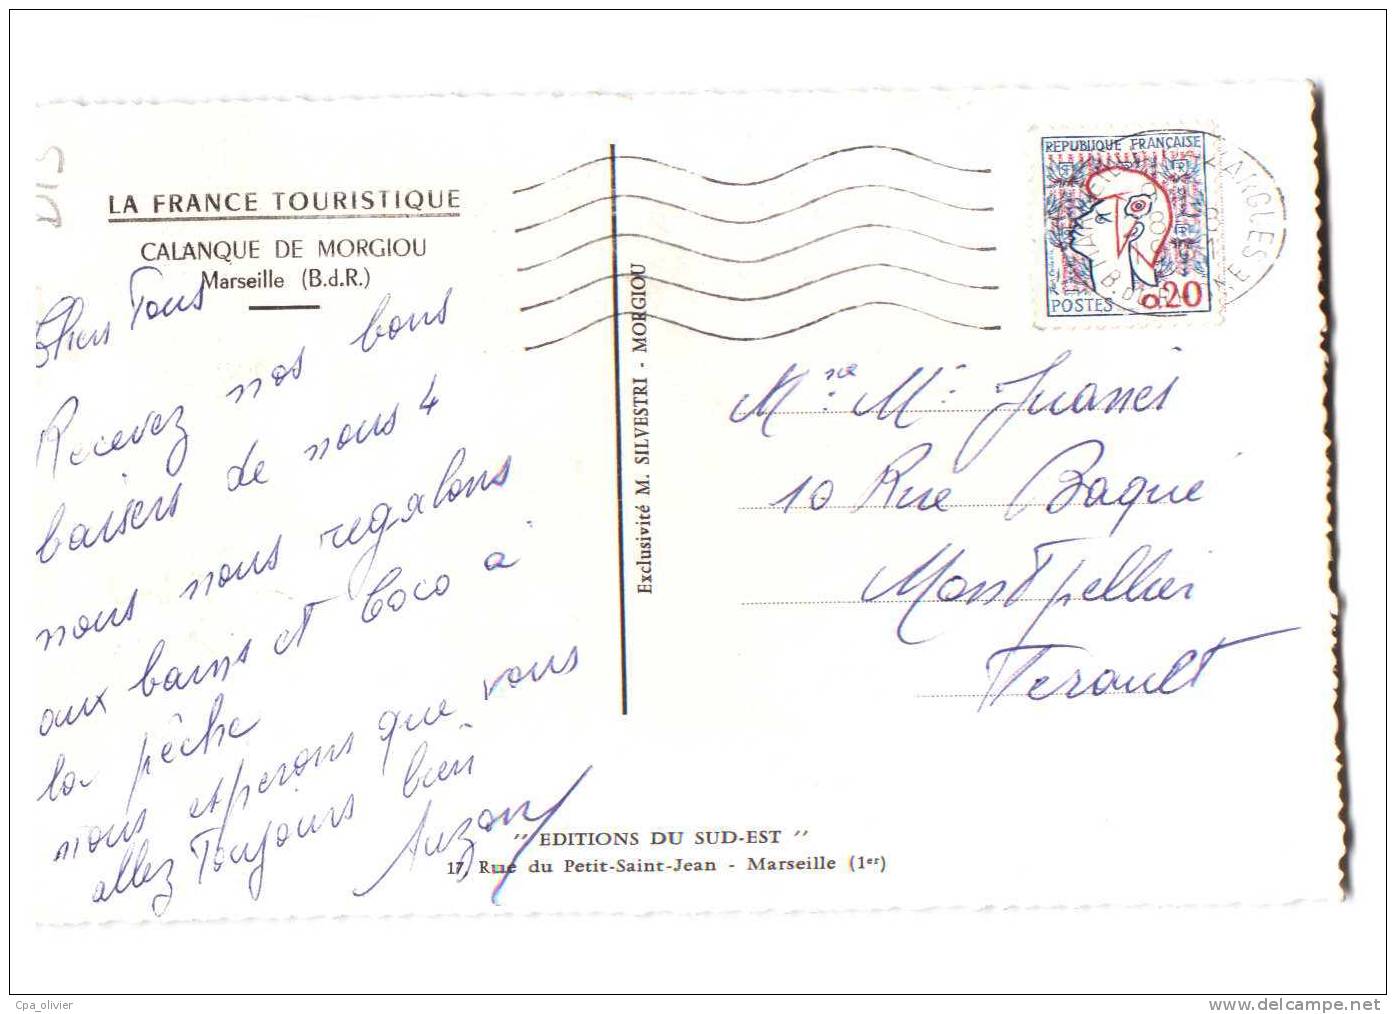 DIS
LA FRANCE TOURISTIQUE
CALANQUE DE MORGIOU
Marseille (B.d.R.)
Chers Tous
Recevez nos bons
baisers de nous 4
nous nous regalons
aux bains et Coco a
la pêche
nous esperons que vous
allez Toujours bien
Auzon
Exclusivité M. SILVESTRI - MORGIOU
REPUBLIQUE FRANÇAISE
POSTES 0,20
MAZARGUES
B.DU RHONE
Mme. Mr. Juanes
10 Rue Baqué
Montpellier
Herault
" EDITIONS DU SUD-EST "
17, Rue du Petit-Saint-Jean - Marseille (1er)
Cpa_olivier
delcampe.net